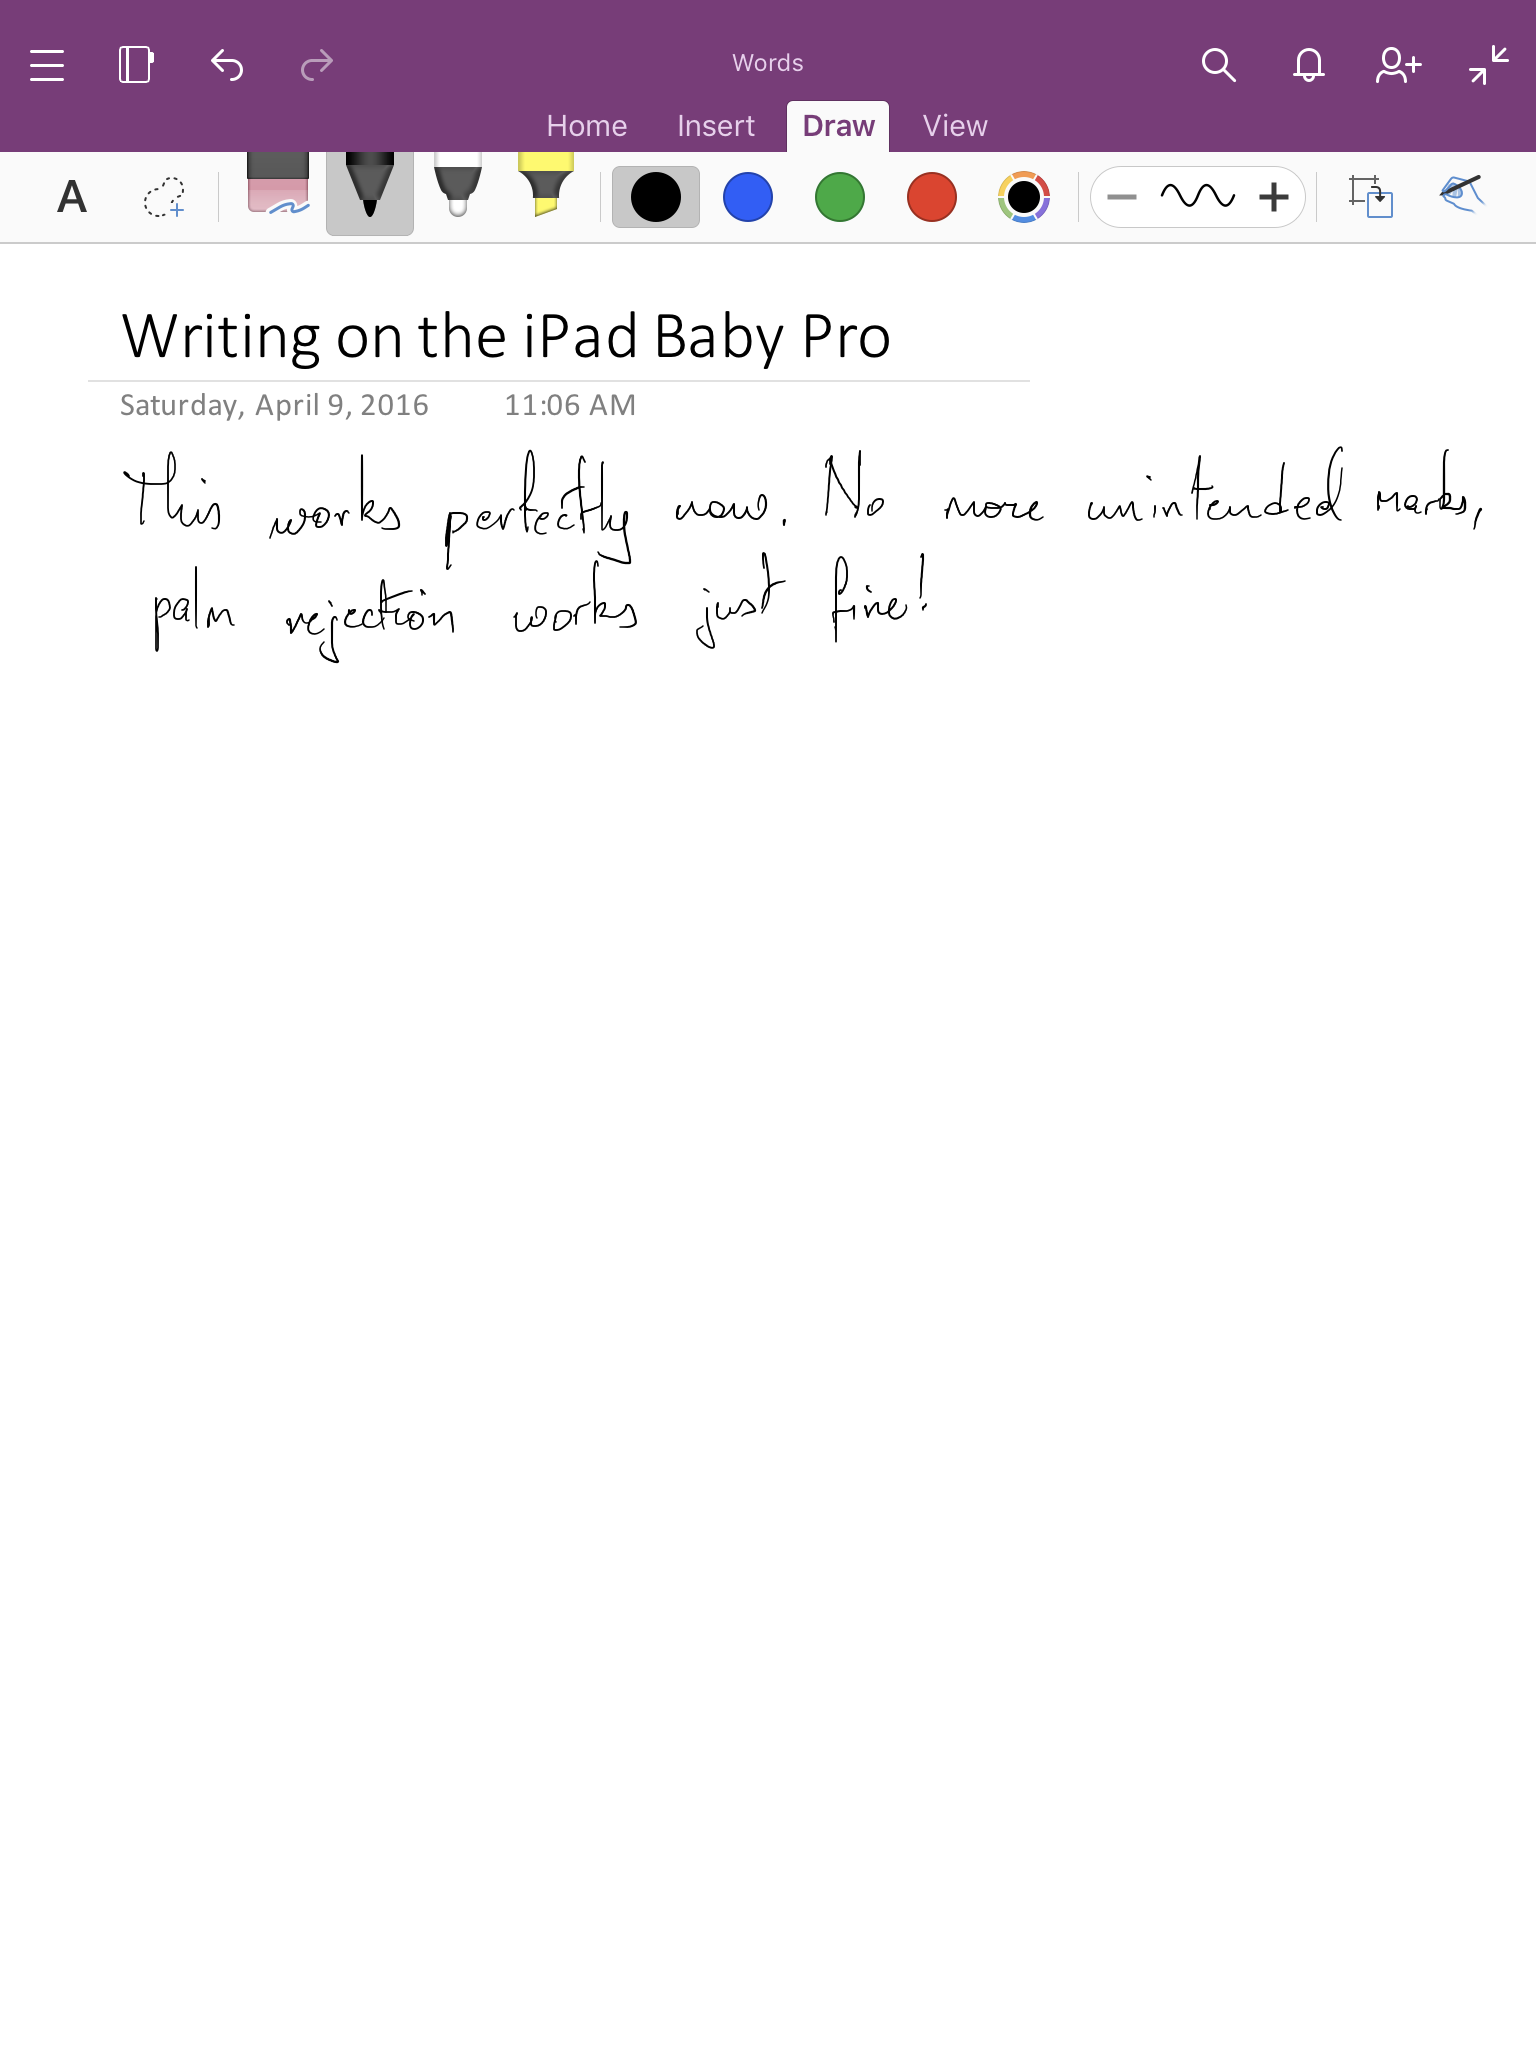 Words
Home Insert Draw View
A
Writing on the iPad Baby Pro
Saturday, April 9, 2016 11:06 AM
This works perfectly now. No more unintended marks,
palm rejection works just fine!